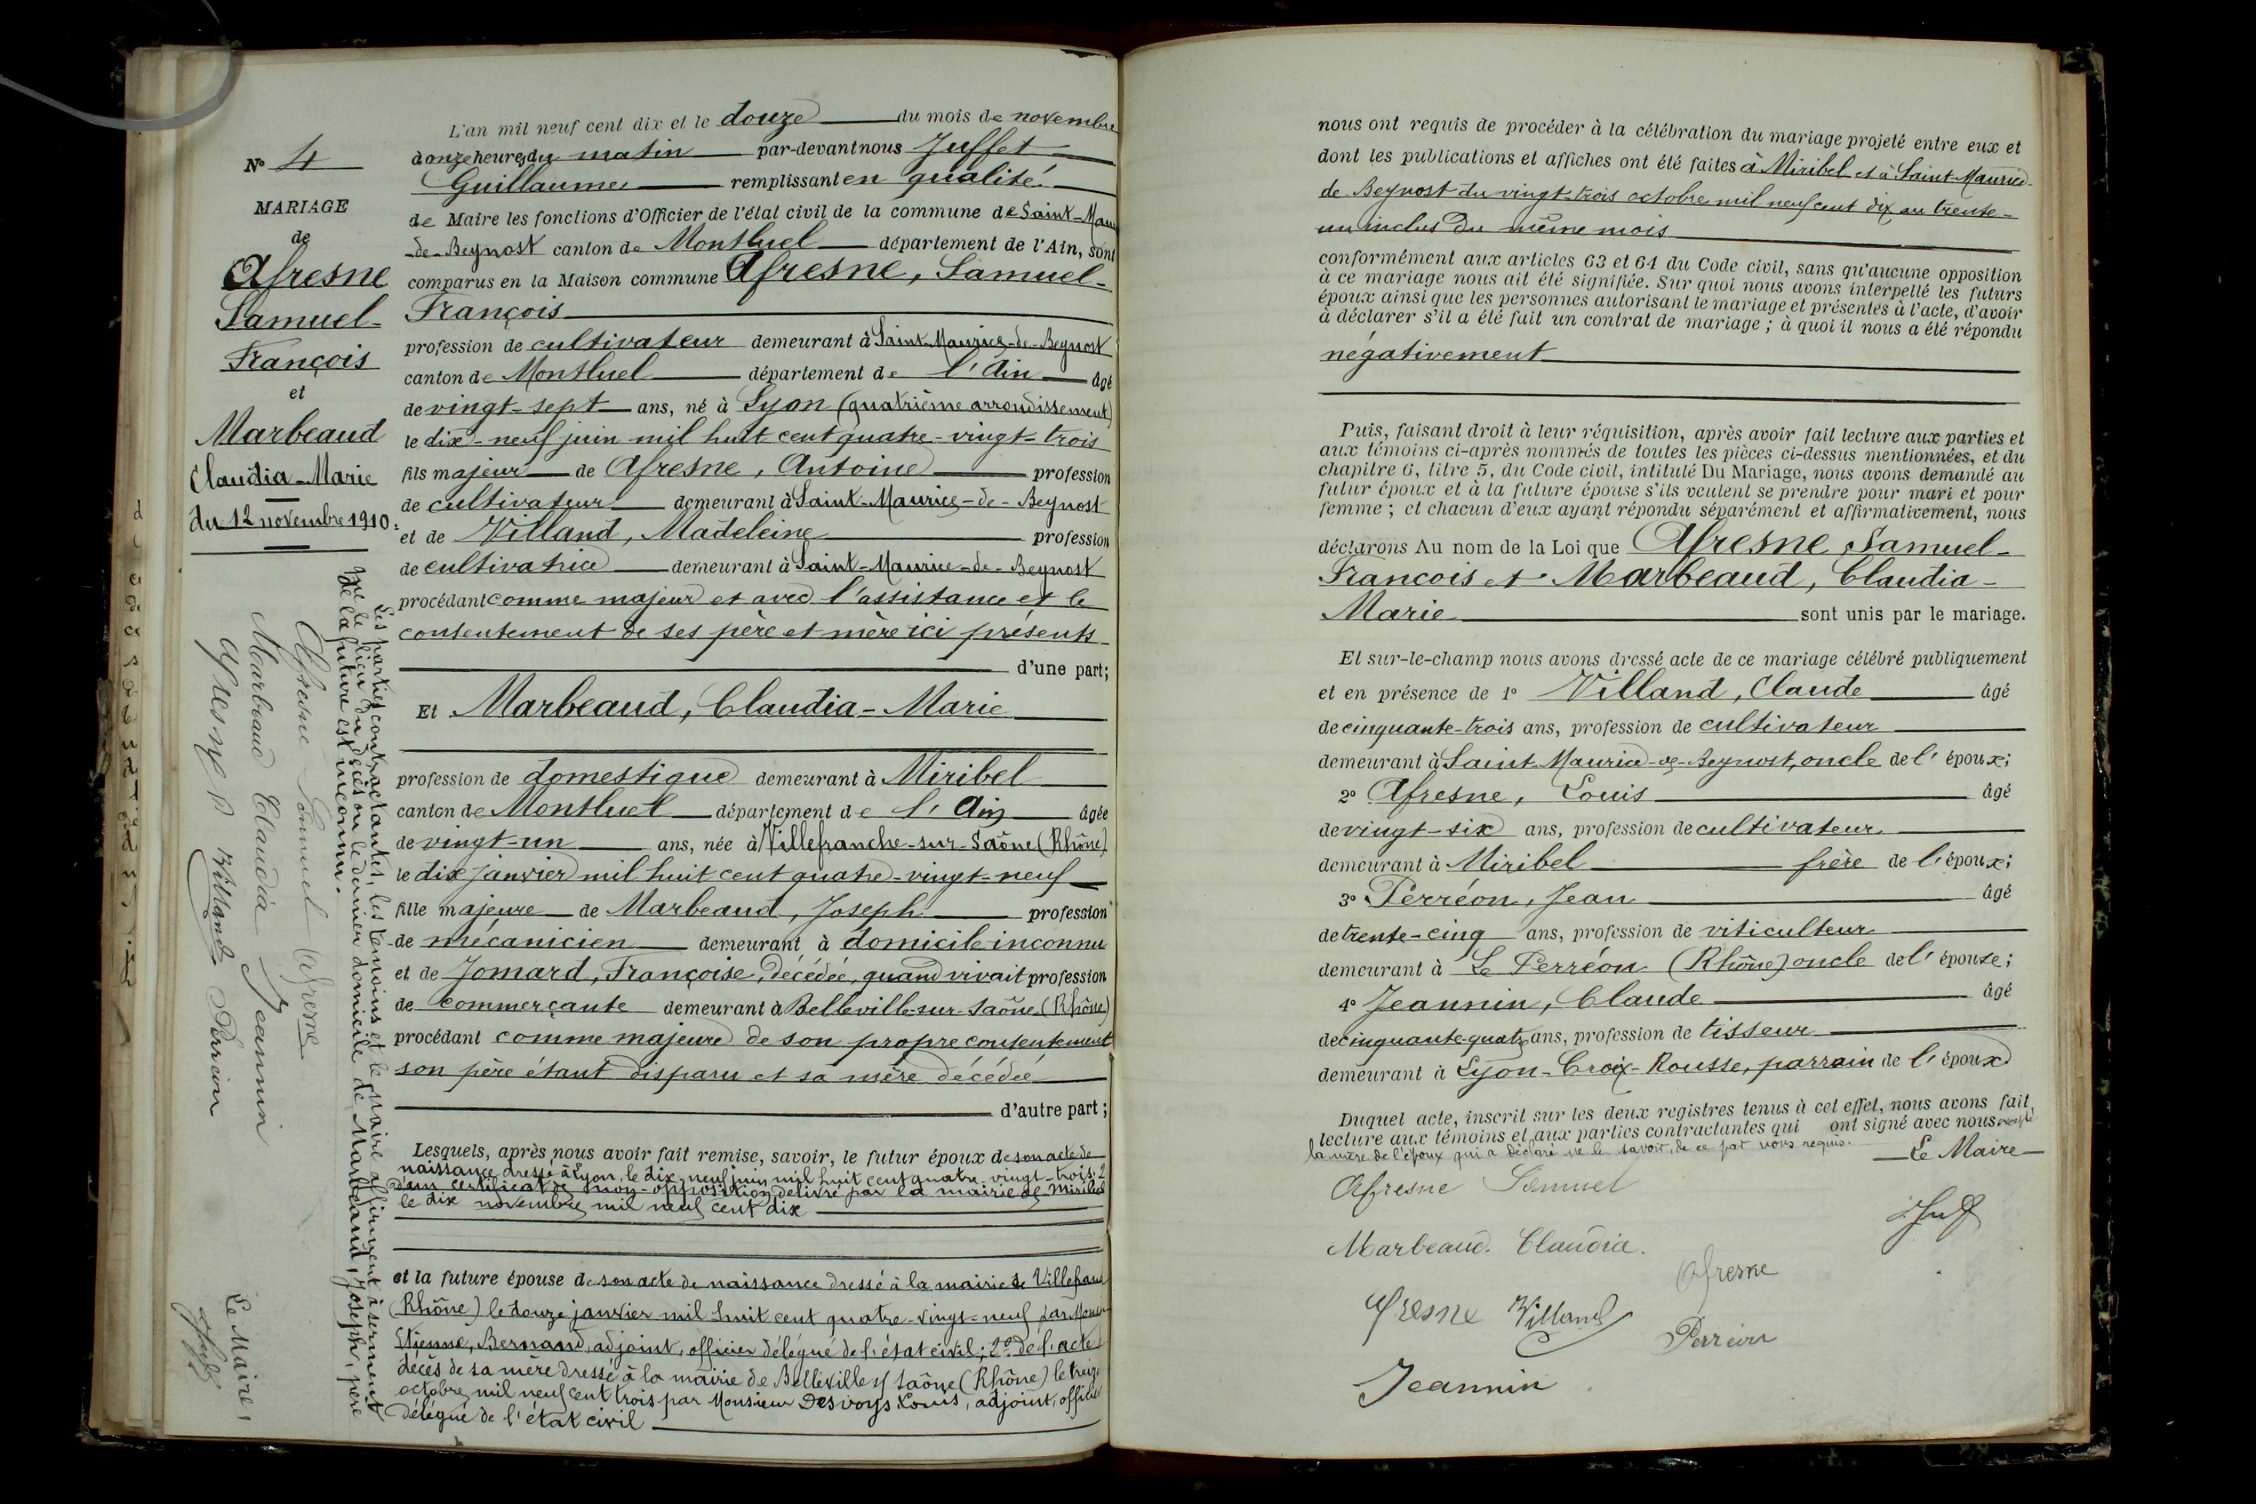 N° 4
MARIAGE
de
Afresne
Samuel-
François
et
Marbeaud
Claudia-Marie
du 12 novembre 1910.
L'an mil neuf cent dix et le douze du mois de novembre
à onze heures du matin par-devant nous Juffet
Guillaume remplissant en qualité
de Maire les fonctions d'Officier de l'état civil de la commune de Saint-Mau
-de-Beynost canton de Montluel département de l'Ain, sont
comparus en la Maison commune Afresne, Samuel-
François
profession de cultivateur demeurant à Saint-Maurice-de-Beynost
canton de Montluel département de l'Ain âgé
de vingt-sept ans, né à Lyon (quatrième arrondissement)
le dix-neuf juin mil huit cent quatre-vingt-trois
fils majeur de Afresne, Antoine profession
de cultivateur demeurant à Saint-Maurice-de-Beynost
et de Villand, Madeleine profession
de cultivatrice demeurant à Saint-Maurice-de-Beynost
procédant comme majeur et avec l'assistance et le
consentement de ses père et mère ici présents
d'une part;
Et Marbeaud, Claudia-Marie
profession de domestique demeurant à Miribel
canton de Montluel département de l'Ain âgée
de vingt-un ans, née à Villefranche-sur-Saône (Rhône)
le dix janvier mil huit cent quatre-vingt-neuf
fille majeure de Marbeaud, Joseph profession
de mécanicien demeurant à domicile inconnu
et de Jomard, Françoise, décédée, quand vivait profession
de commerçante demeurant à Belleville-sur-Saône (Rhône)
procédant comme majeure de son propre consentement
son père étant disparu et sa mère décédée
d'autre part;
Lesquels, après nous avoir fait remise, savoir, le futur époux de son acte de
naissance dressé à Lyon, le dix-neuf juin mil huit cent quatre-vingt-trois; 2
d'un certificat de non-opposition délivré par la mairie de Miribel
le dix novembre mil neuf cent dix
et la future épouse de son acte de naissance dressé à la mairie de Villefran
(Rhône) le douze janvier mil huit cent quatre-vingt-neuf par
Etienne, Bernand, adjoint, officier délégué de l'état civil; 2° de l'acte
décès de sa mère dressé à la mairie de Belleville s/ Saône (Rhône) le treize
octobre mil neuf cent trois par Monsieur Desvoys Louis, adjoint, officier
délégué de l'état civil
Les parties contractantes, les témoins et le Maire affirment à serment
que le lieu du décès ou le dernier domicile de Marbeaud, Joseph, père
de la future est inconnu.
Afresne Samuel Afresne
Marbeaud Claudia Jeannin
Afresne Villand Perréon
Le Maire,
nous ont requis de procéder à la célébration du mariage projeté entre eux et
dont les publications et affiches ont été faites à Miribel et à Saint-Maurice-
de Beynost du vingt-trois octobre mil neuf cent dix au trente-
un inclus du même mois
conformément aux articles 63 et 64 du Code civil, sans qu'aucune opposition
à ce mariage nous ait été signifiée. Sur quoi nous avons interpellé les futurs
époux ainsi que les personnes autorisant le mariage et présentes à l'acte, d'avoir
à déclarer s'il a été fait un contrat de mariage; à quoi il nous a été répondu
négativement
Puis, faisant droit à leur réquisition, après avoir fait lecture aux parties et
aux témoins ci-après nommés de toutes les pièces ci-dessus mentionnées, et du
chapitre 6, titre 5, du Code civil, intitulé Du Mariage, nous avons demandé au
futur époux et à la future épouse s'ils veulent se prendre pour mari et pour
femme; et chacun d'eux ayant répondu séparément et affirmativement, nous
déclarons Au nom de la Loi que Afresne, Samuel-
François et Marbeaud, Claudia-
Marie sont unis par le mariage.
Et sur-le-champ nous avons dressé acte de ce mariage célébré publiquement
et en présence de 1° Villand, Claude âgé
de cinquante-trois ans, profession de cultivateur
demeurant à Saint Maurice-de-Beynost, oncle de l'époux;
2° Afresne, Louis âgé
de vingt-six ans, profession de cultivateur
demeurant à Miribel frère de l'époux;
3° Perréon, Jean âgé
de trente-cinq ans, profession de viticulteur
demeurant à Le Perréon (Rhône) oncle de l'épouse;
4° Jeannin, Claude âgé
de cinquante-quatre ans, profession de tisseur
demeurant à Lyon-Croix-Rousse, parrain de l'époux
Duquel acte, inscrit sur les deux registres tenus à cet effet, nous avons fait
lecture aux témoins et aux parties contractantes qui ont signé avec nous excepté
la mère de l'époux qui a déclaré ne le savoir, de ce par nous requis.
Le Maire
Afresne Samuel
Juff
Marbeaud. Claudia.
Afresne
Afresne Villand
Perréon
Jeannin